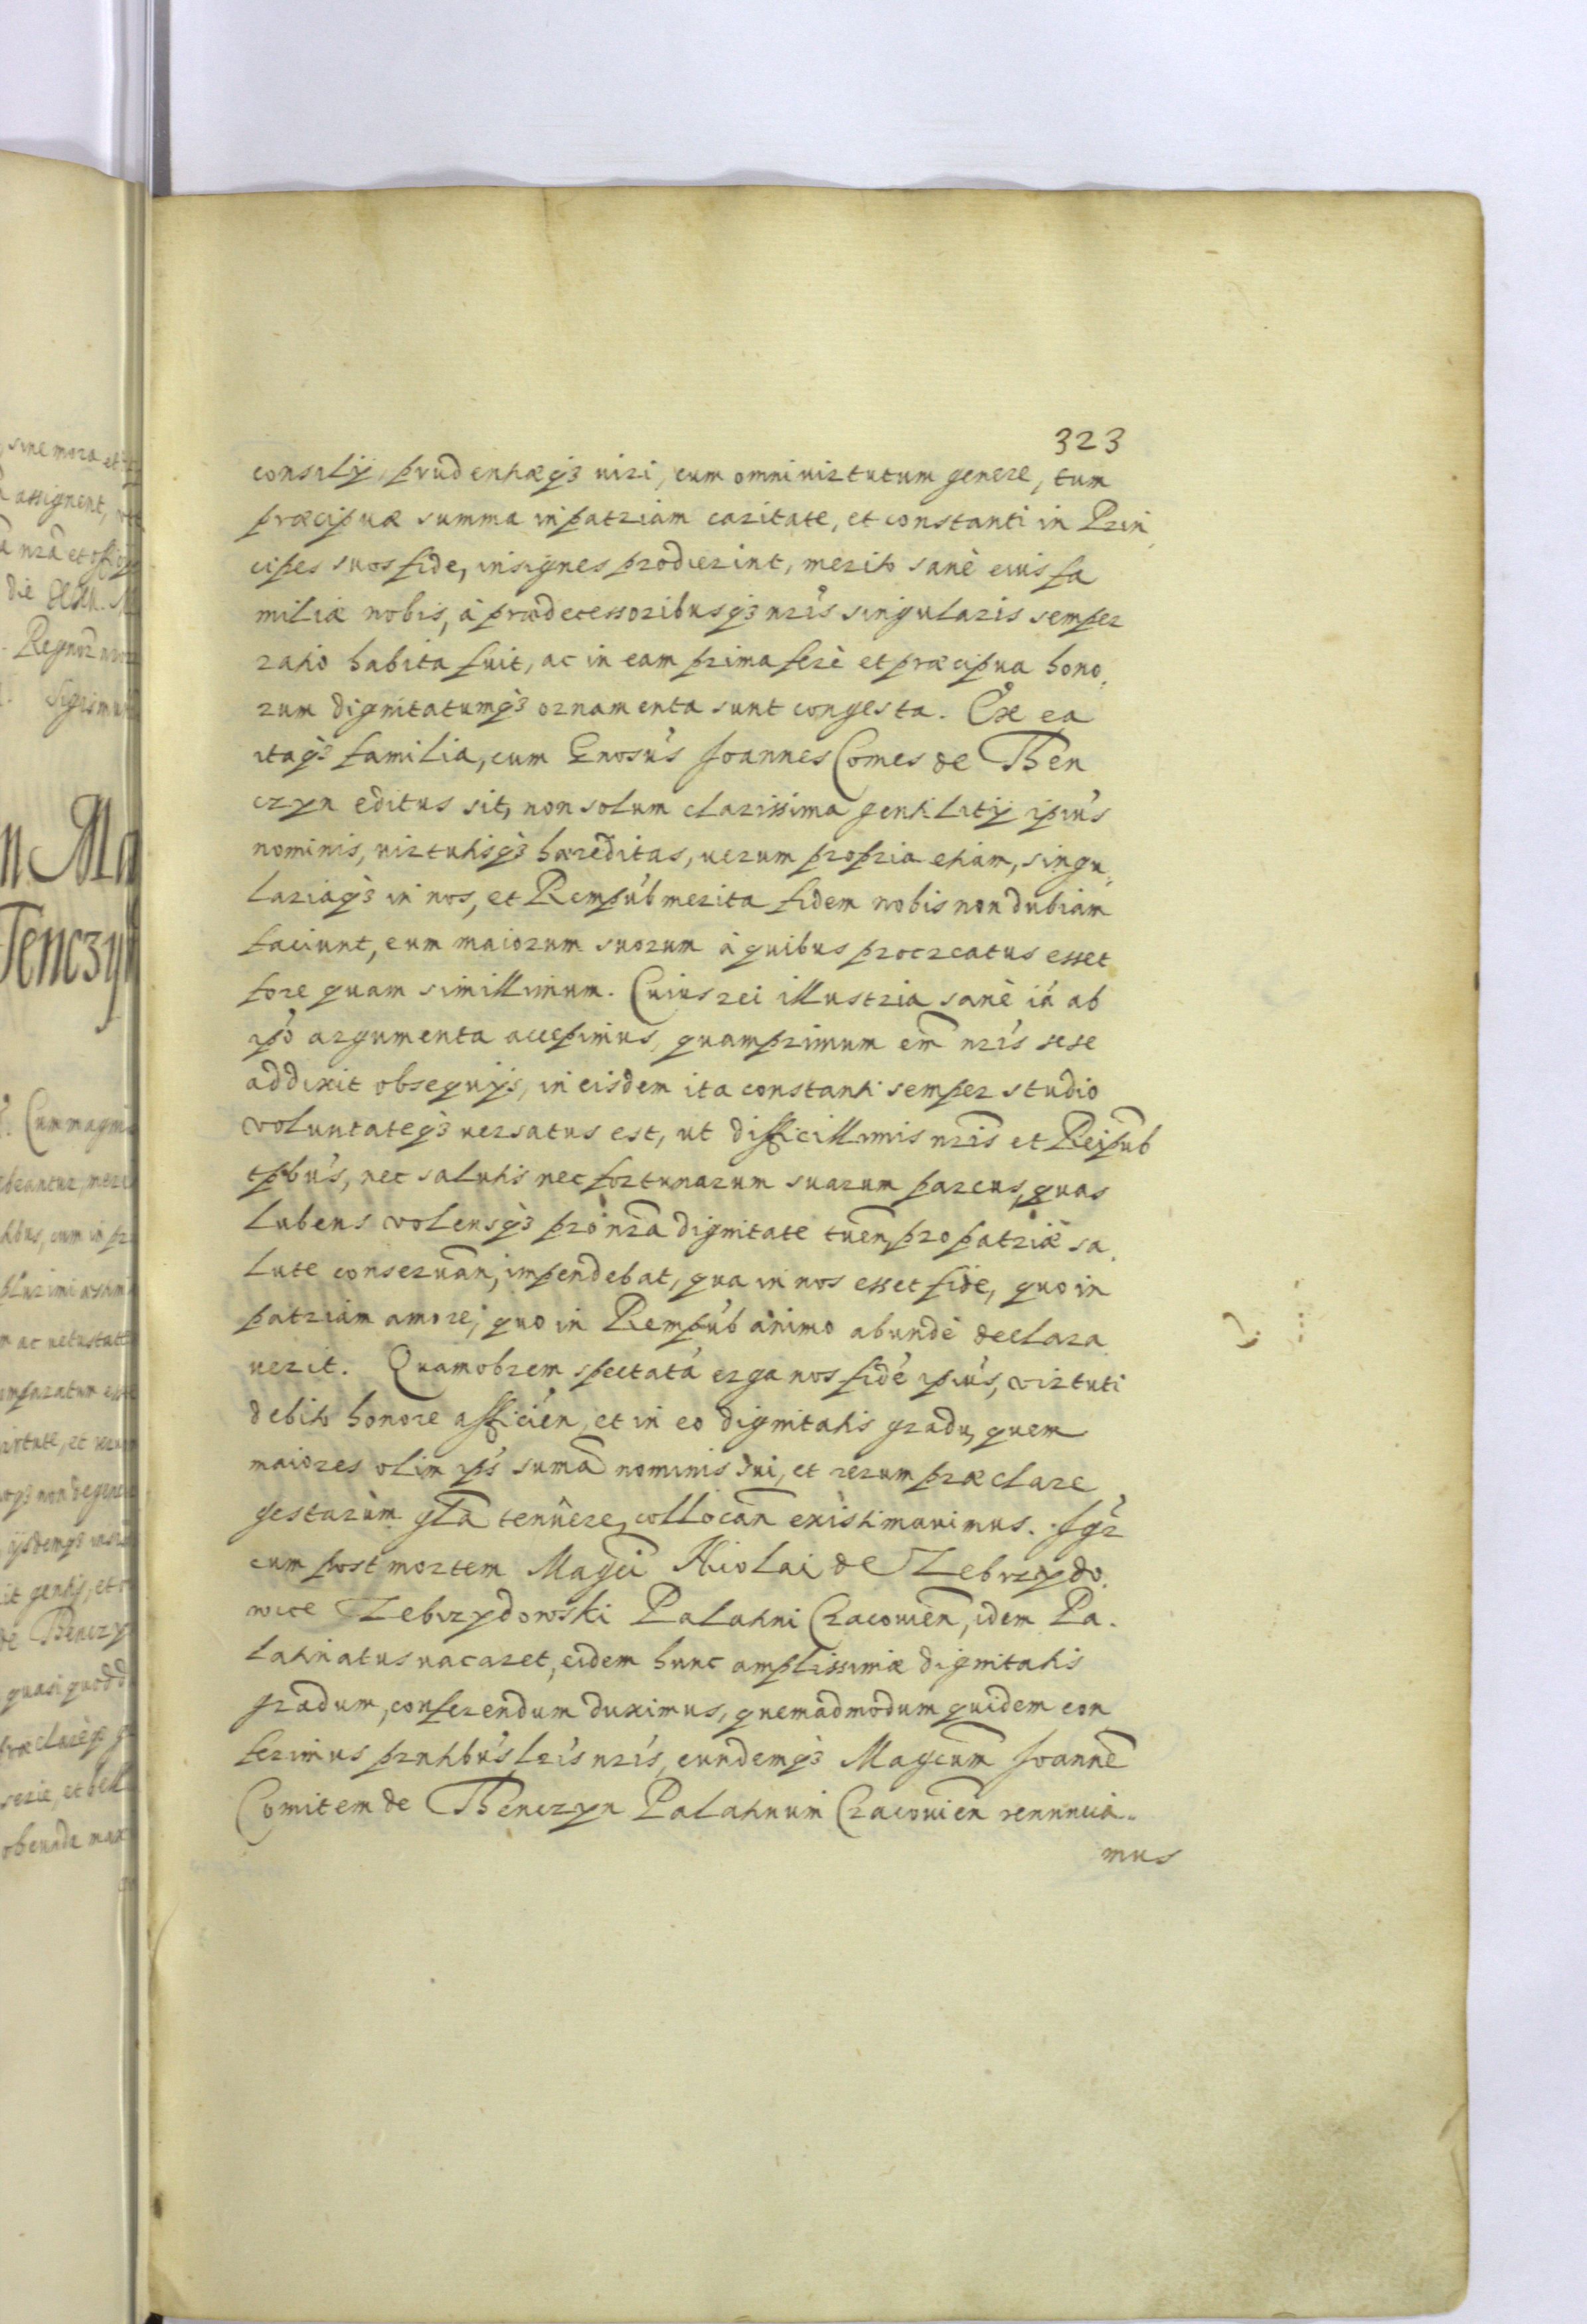 323
consilij, prudentiæq3 uiri, cum omni uirtutum genere, tum
præcipuæ summa in patriam caritate, et constanti in Prin
cipes suos fide, insignes prodierint, merito sanè eius fa
miliæ nobis, à prædecessoribusq3 nris singularis semper
ratio habita fuit, ac in eam prima ferè et præcipua hono,
rum dignitatumq3 ornamenta sunt congesta. Ex ea
itaq3 familia, cum Gnosus Joannes Comes de Then
czyn editus sit, non solum clarissima gentilitij ipius
nominis, uirtutisq3 hæreditas, uerum propria etiam, singu,
lariaq3 in nos, et Rempub merita fidem nobis non dubiam
faciunt, eum maiorum suorum à quibus procreatus esset
fore quam simillimum. Cuius rei illustria sanè iá ab
ipo argumenta accepimus, quamprimum em nris sese
addixit obsequijs, in eisdem ita constanti semper studio
voluntateq3 uersatus est, ut difficillimis nris et Reipub
tpbus, nec salutis nec fortunarum suarum parcus, quas
lubens volensq3 pro nra dignitate tuen, pro patriæ sa,
lute conseruan, impendebat, qua in nos esset fide, quo in
patriam amore, quo in Rempub animo abundè declara
uerit. Quamobrem spectatá erga nos fidé ipius, virtuti
debito honore afficién, et in eo dignitatis gradu, quem
maiores olim ips suma nominis sui, et rerum præclare
gestarum gla tenuere, collocan existimauimus. Igr
cum post mortem Magci Nicolai de Zebrzydo,
wice Zebrzydowski Palatini Cracouien, idem Pa.
latinatus uacaret, eidem hunc amplissimæ dignitatis
gradum, conferendum duximus, quemadmodum quidem con
ferimus prntibus lris nris, eundemq3 Magcum Joanne
Comitem de Thenczyn Palatinum Cracouien renuncia..
mus